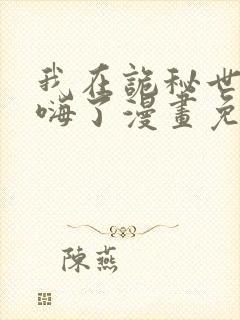 我在詭秘世
嗨了漫畫免
陳燕